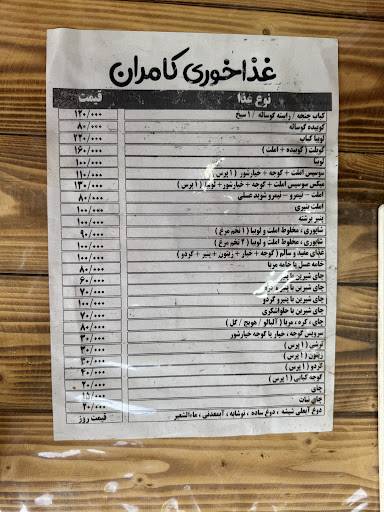 غذاخوری کامران
نوع غذا قیمت
کباب چنجه / راسته گوساله / 1 سیخ ۱۲۰/۰۰۰
کوبیده گوساله ۸۰/۰۰۰
لوبیا کباب ۲۲۰/۰۰۰
کوبلت ( کوبیده + املت ) ۱۶۰/۰۰۰
لوبیا ۱۰۰/۰۰۰
سوسیس املت + گوجه + خیارشور ( 1 پرس ) ۱۱۰/۰۰۰
میکس سوسیس املت + گوجه + خیارشور + لوبیا ( 1 پرس ) ۱۳۰/۰۰۰
املت - نیمرو - نیمرو شوید عسلی ۸۰/۰۰۰
املت پنیری ۱۰۰/۰۰۰
پنیر برشته ۱۰۰/۰۰۰
شاپوری ، مخلوط املت و لوبیا ( 1 تخم مرغ ) ۹۰/۰۰۰
شاپوری ، مخلوط املت و لوبیا ( 2 تخم مرغ ) ۱۰۰/۰۰۰
غذای مفید و سالم ( گوجه + خیار + زیتون + پنیر + گردو ) ۱۰۰/۰۰۰
خامه عسل یا خامه مربا ۸۰/۰۰۰
چای شیرین با پنیر ۶۰/۰۰۰
چای شیرین با پنیر و کره ۷۰/۰۰۰
چای شیرین با پنیرو گردو ۱۰۰/۰۰۰
چای شیرین با حلواشکری ۷۰/۰۰۰
چای ، کره ، مربا ( آلبالو / هویج / گل ) ۸۰/۰۰۰
سرویس گوجه ، خیار یا گوجه خیارشور ۳۰/۰۰۰
ترشی ( 1 پرس ) ۳۰/۰۰۰
زیتون ( 1 پرس ) ۳۰/۰۰۰
گردو ( 1 پرس ) ۴۰/۰۰۰
گوجه کبابی ( 1 پرس ) ۲۰/۰۰۰
چای ۱۵/۰۰۰
چای نبات ۲۰/۰۰۰
دوغ آبعلی شیشه ، دوغ ساده ، نوشابه ، آبمعدنی ، ماءالشعیر قیمت روز